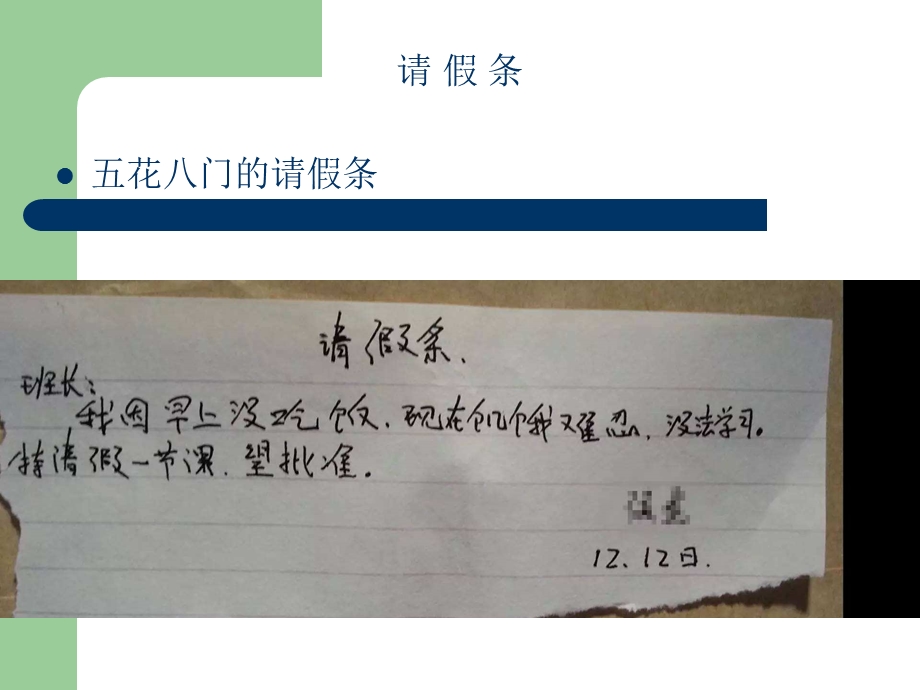 请 假 条
五花八门的请假条
请假条.
班长：
我因早上没吃饭、现在饥饿难忍，没法学习。
特请假一节课，望批准。
12、12日.